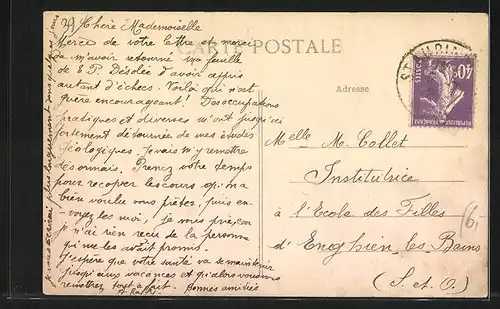 CARTE POSTALE
Adresse
29 Chère Mademoiselle
Merci de votre lettre et merci
de m'avoir retourné ma feuille
de E P. Désolée d'avoir appris
autant d'échecs. Voilà qui n'est
guère encourageant! Des occupations
pratiques et diverses m'ont jusqu'ici
fortement détournée de mes études
géologiques. Je vais m'y remettre
désormais. Prenez votre temps
pour recopier les cours qu'on a
bien voulu vous prêter, puis en-
voyez les moi, je vous prie, car
je n'ai rien reçu de la personne
qui me les avait promis.
J'espère que votre santé va se maintenir
jusqu'aux vacances et qu'alors vous vous
remettrez tout à fait. Bonnes amitiés
je vous écrirai plus longuement dans quelques jours
Melle M. Collet
Institutrice
à l'Ecole des Filles
d'Enghien les Bains
(S. et O.)
40c
POSTES
REPUBLIQUE FRANÇAISE
6,-